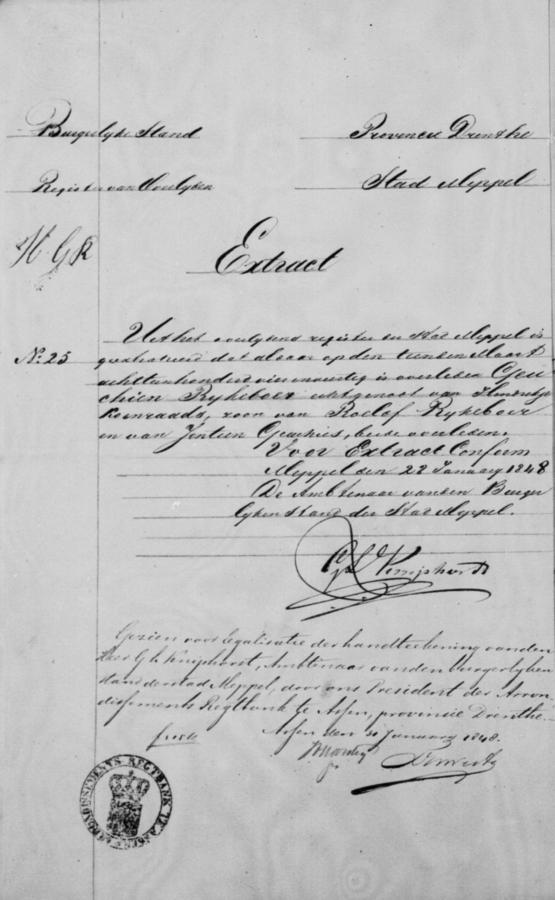 Burgerlyke Stand
Provencie Drenthe
Register van Overlyden
Stad Meppel
H. G. R
Extract
No. 25
Uit het overlydens register der Stad Meppel is
geextraheerd dat aldaar op den tienden Maart
achttienhonderd vierennegentig is overleden Geu
chien Rykeboer echtgenoot van
Koenraads, zoon van Roelof Rykeboer
en van Jentien Geuchies, beide overleden.
Voor Extract Conform
Meppel den 22 January 1848
De Ambtenaar van den Burger
lyken Stand der Stad Meppel.
G L Kniphorst
Gezien voor legalisatie der handteekening van den
Heer G L Kniphorst, Ambtenaar van den Burgerlyken
Stand der stad Meppel, door ons President der Arron
dissements Regtbank te Assen, provincie Drenthe
Assen den 30 January 1848.
ARRONDISSEMENTS REGTBANK TE ASSEN